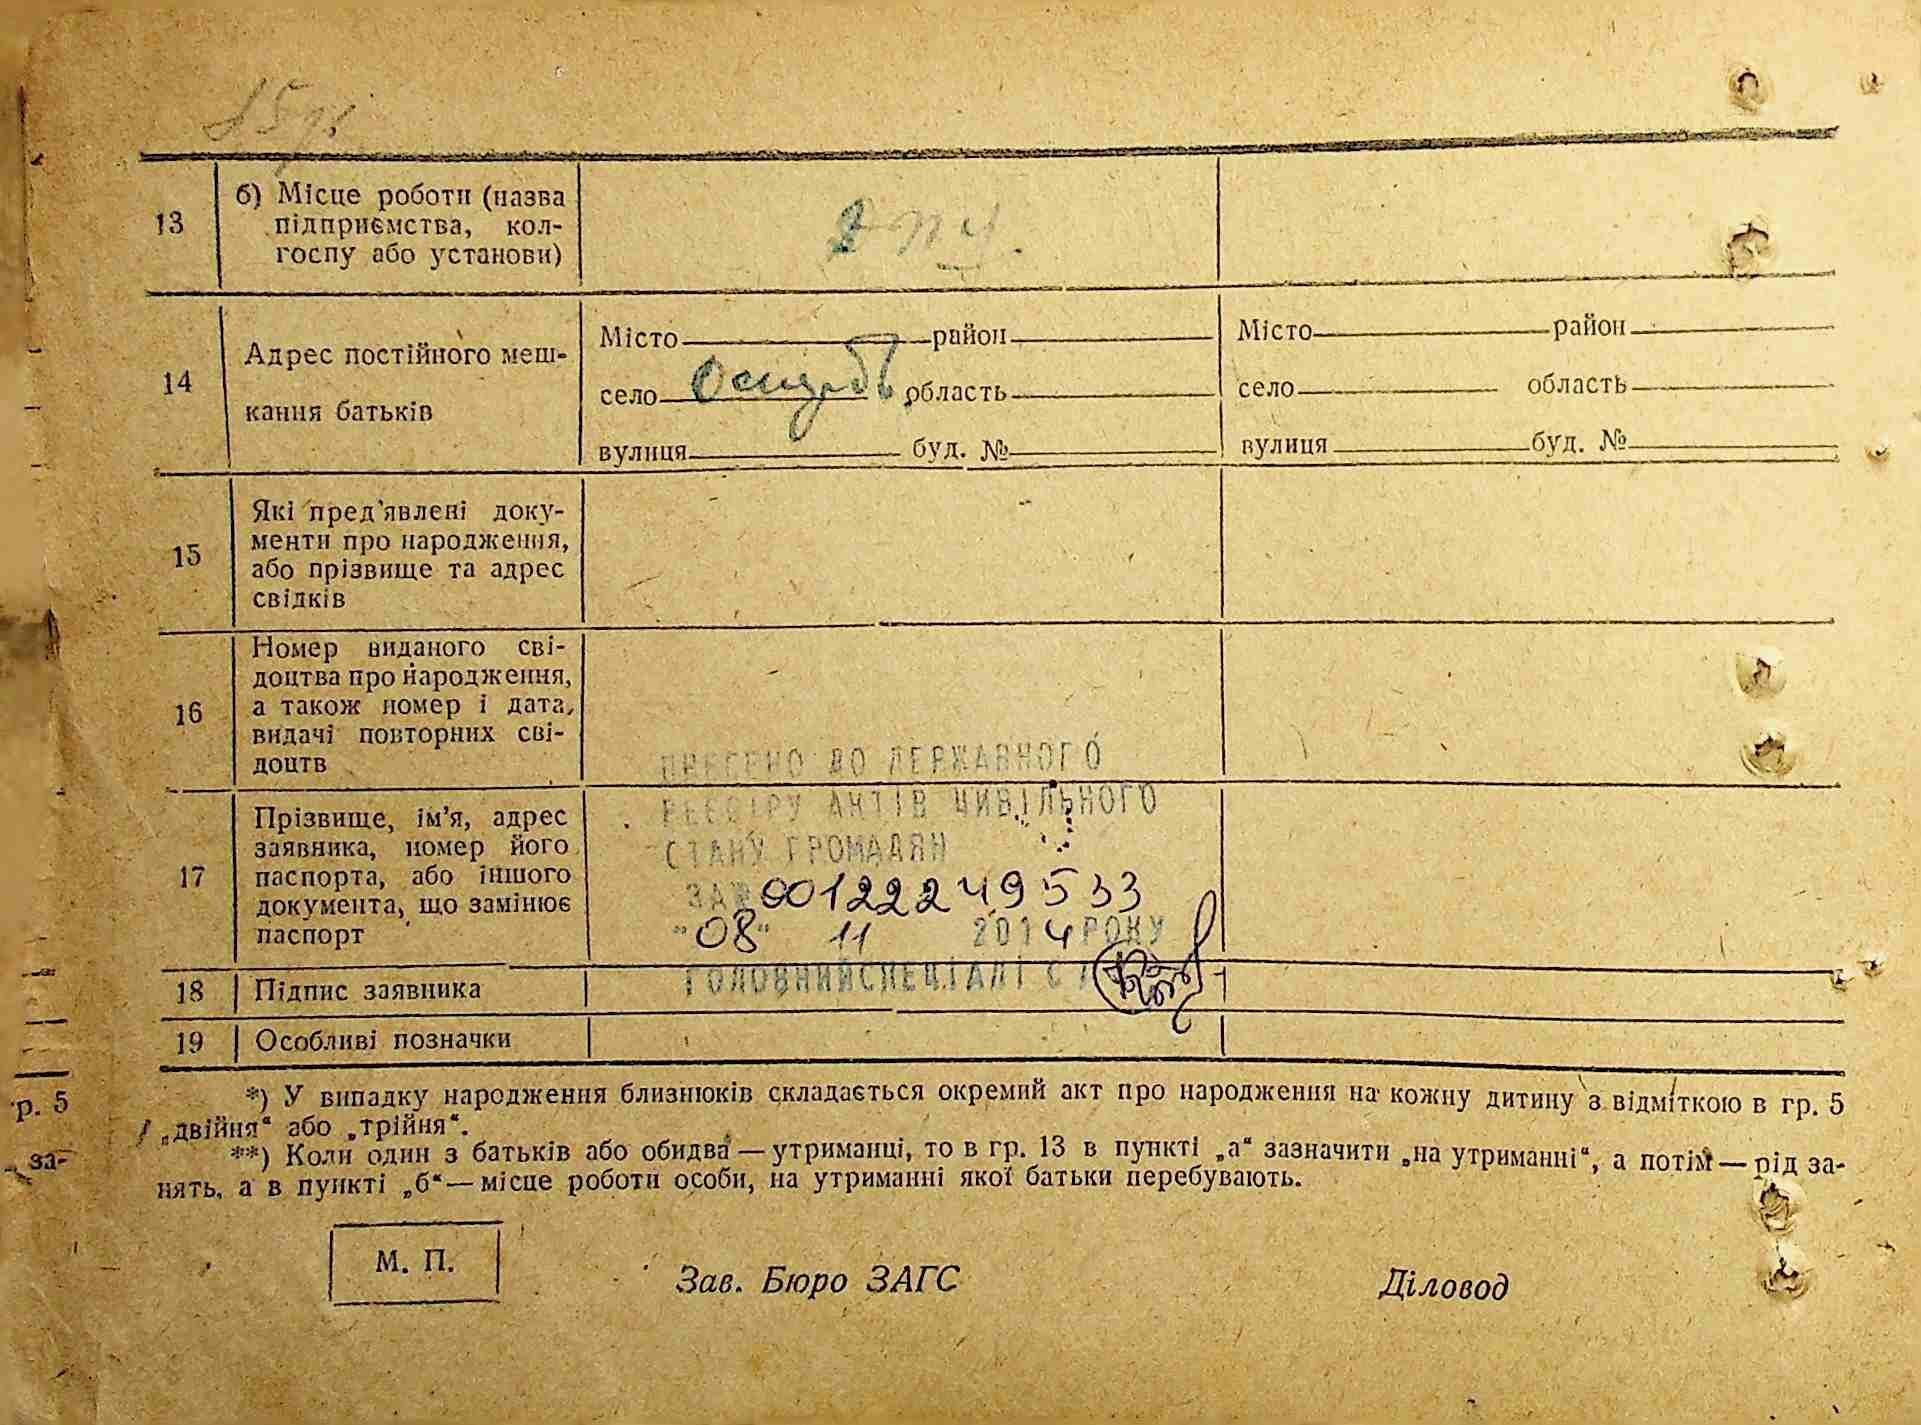 13
б) Місце роботи (назва
підприємства, кол-
госпу або установи)
14
Адрес постійного меш-
кання батьків
Місто район
село область
вулиця буд. №
Місто район
село область
вулиця буд. №
15
Які пред'явлені доку-
менти про народження,
або прізвище та адрес
свідків
16
Номер виданого сві-
доцтва про народження,
а також номер і дата,
видачі повторних сві-
доцтв
17
Прізвище, ім'я, адрес
заявника, номер його
паспорта, або іншого
документа, що замінює
паспорт
ВНЕСЕНО ДО ДЕРЖАВНОГО
РЕЄСТРУ АКТІВ ЦИВІЛЬНОГО
СТАНУ ГРОМАДЯН
ЗА № 00122249533
"08" 11 2014 РОКУ
ГОЛОВНИЙ СПЕЦІАЛІСТ
18
Підпис заявника
19
Особливі позначки
*) У випадку народження близнюків складається окремий акт про народження на кожну дитину з відміткою в гр. 5
„двійня“ або „трійня“.
**) Коли один з батьків або обидва — утриманці, то в гр. 13 в пункті „а“ зазначити „на утриманні“, а потім — рід за-
нять, а в пункті „б“ — місце роботи особи, на утриманні якої батьки перебувають.
р. 5
за-
М. П.
Зав. Бюро ЗАГС
Діловод